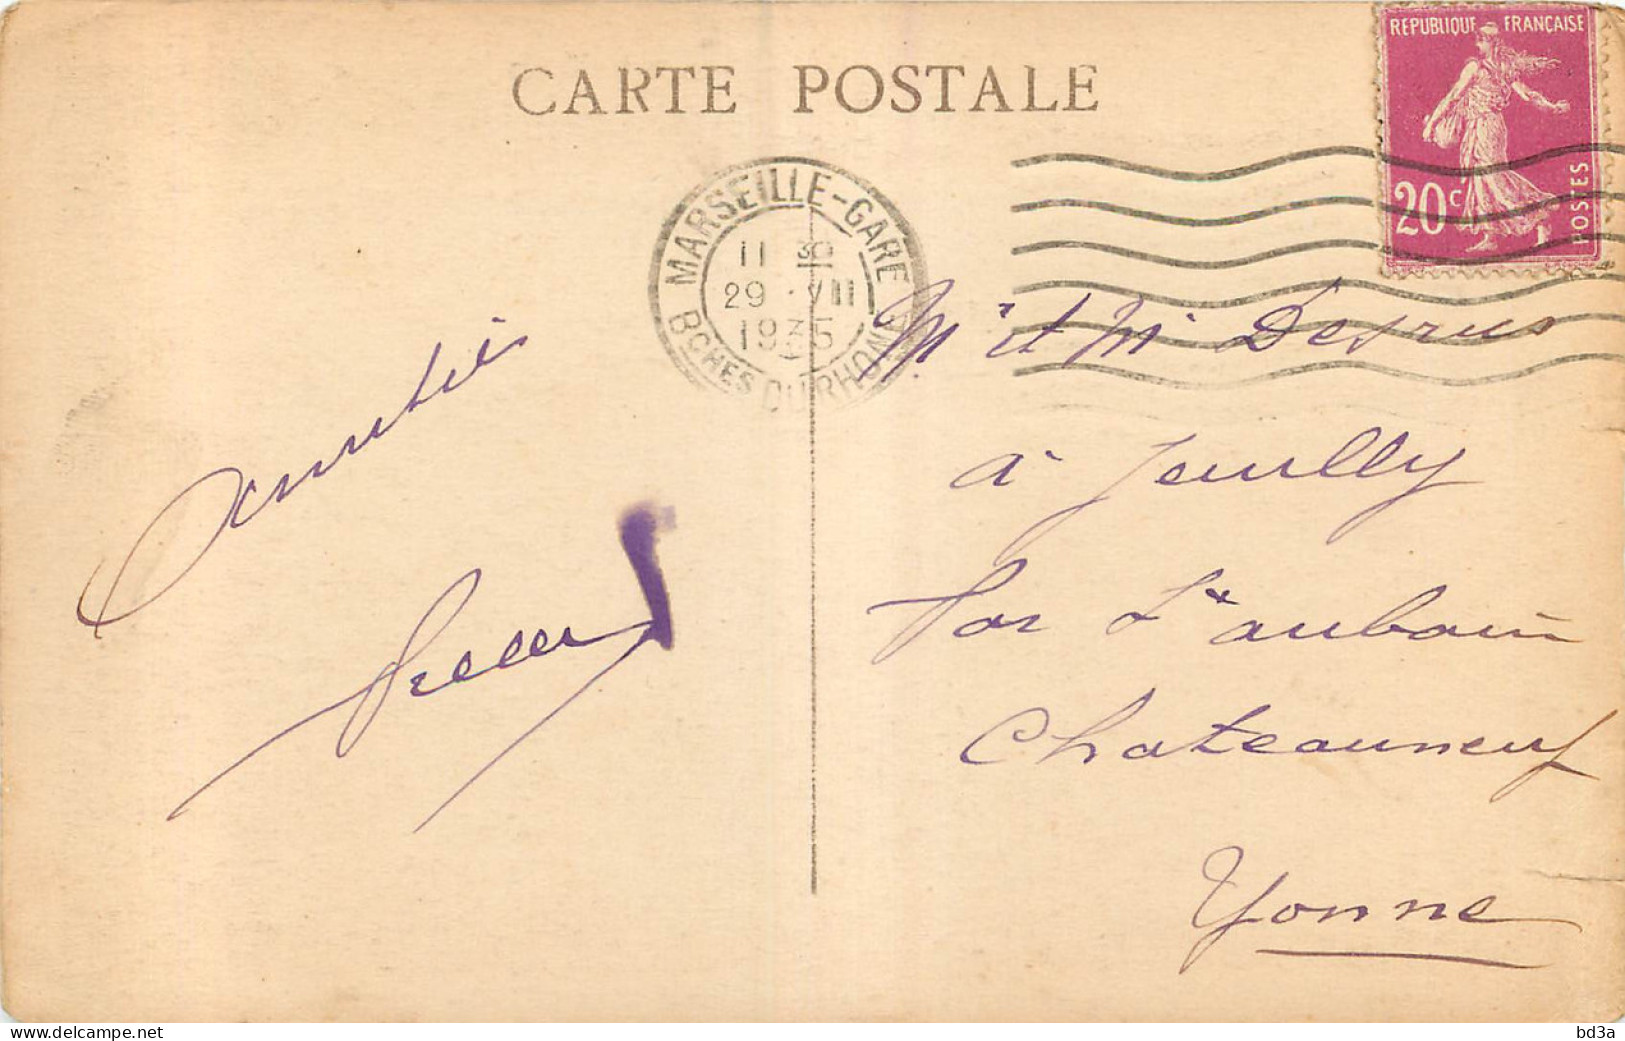 CARTE POSTALE
REPUBLIQUE FRANÇAISE
20c
POSTES
MARSEILLE-GARE
11 30
29 · VII
1935
BCHES DU RHONE
Amitié
Mr et Me
à
par St aubain
Chateauneuf
Yonne
delcampe.net
bd3a